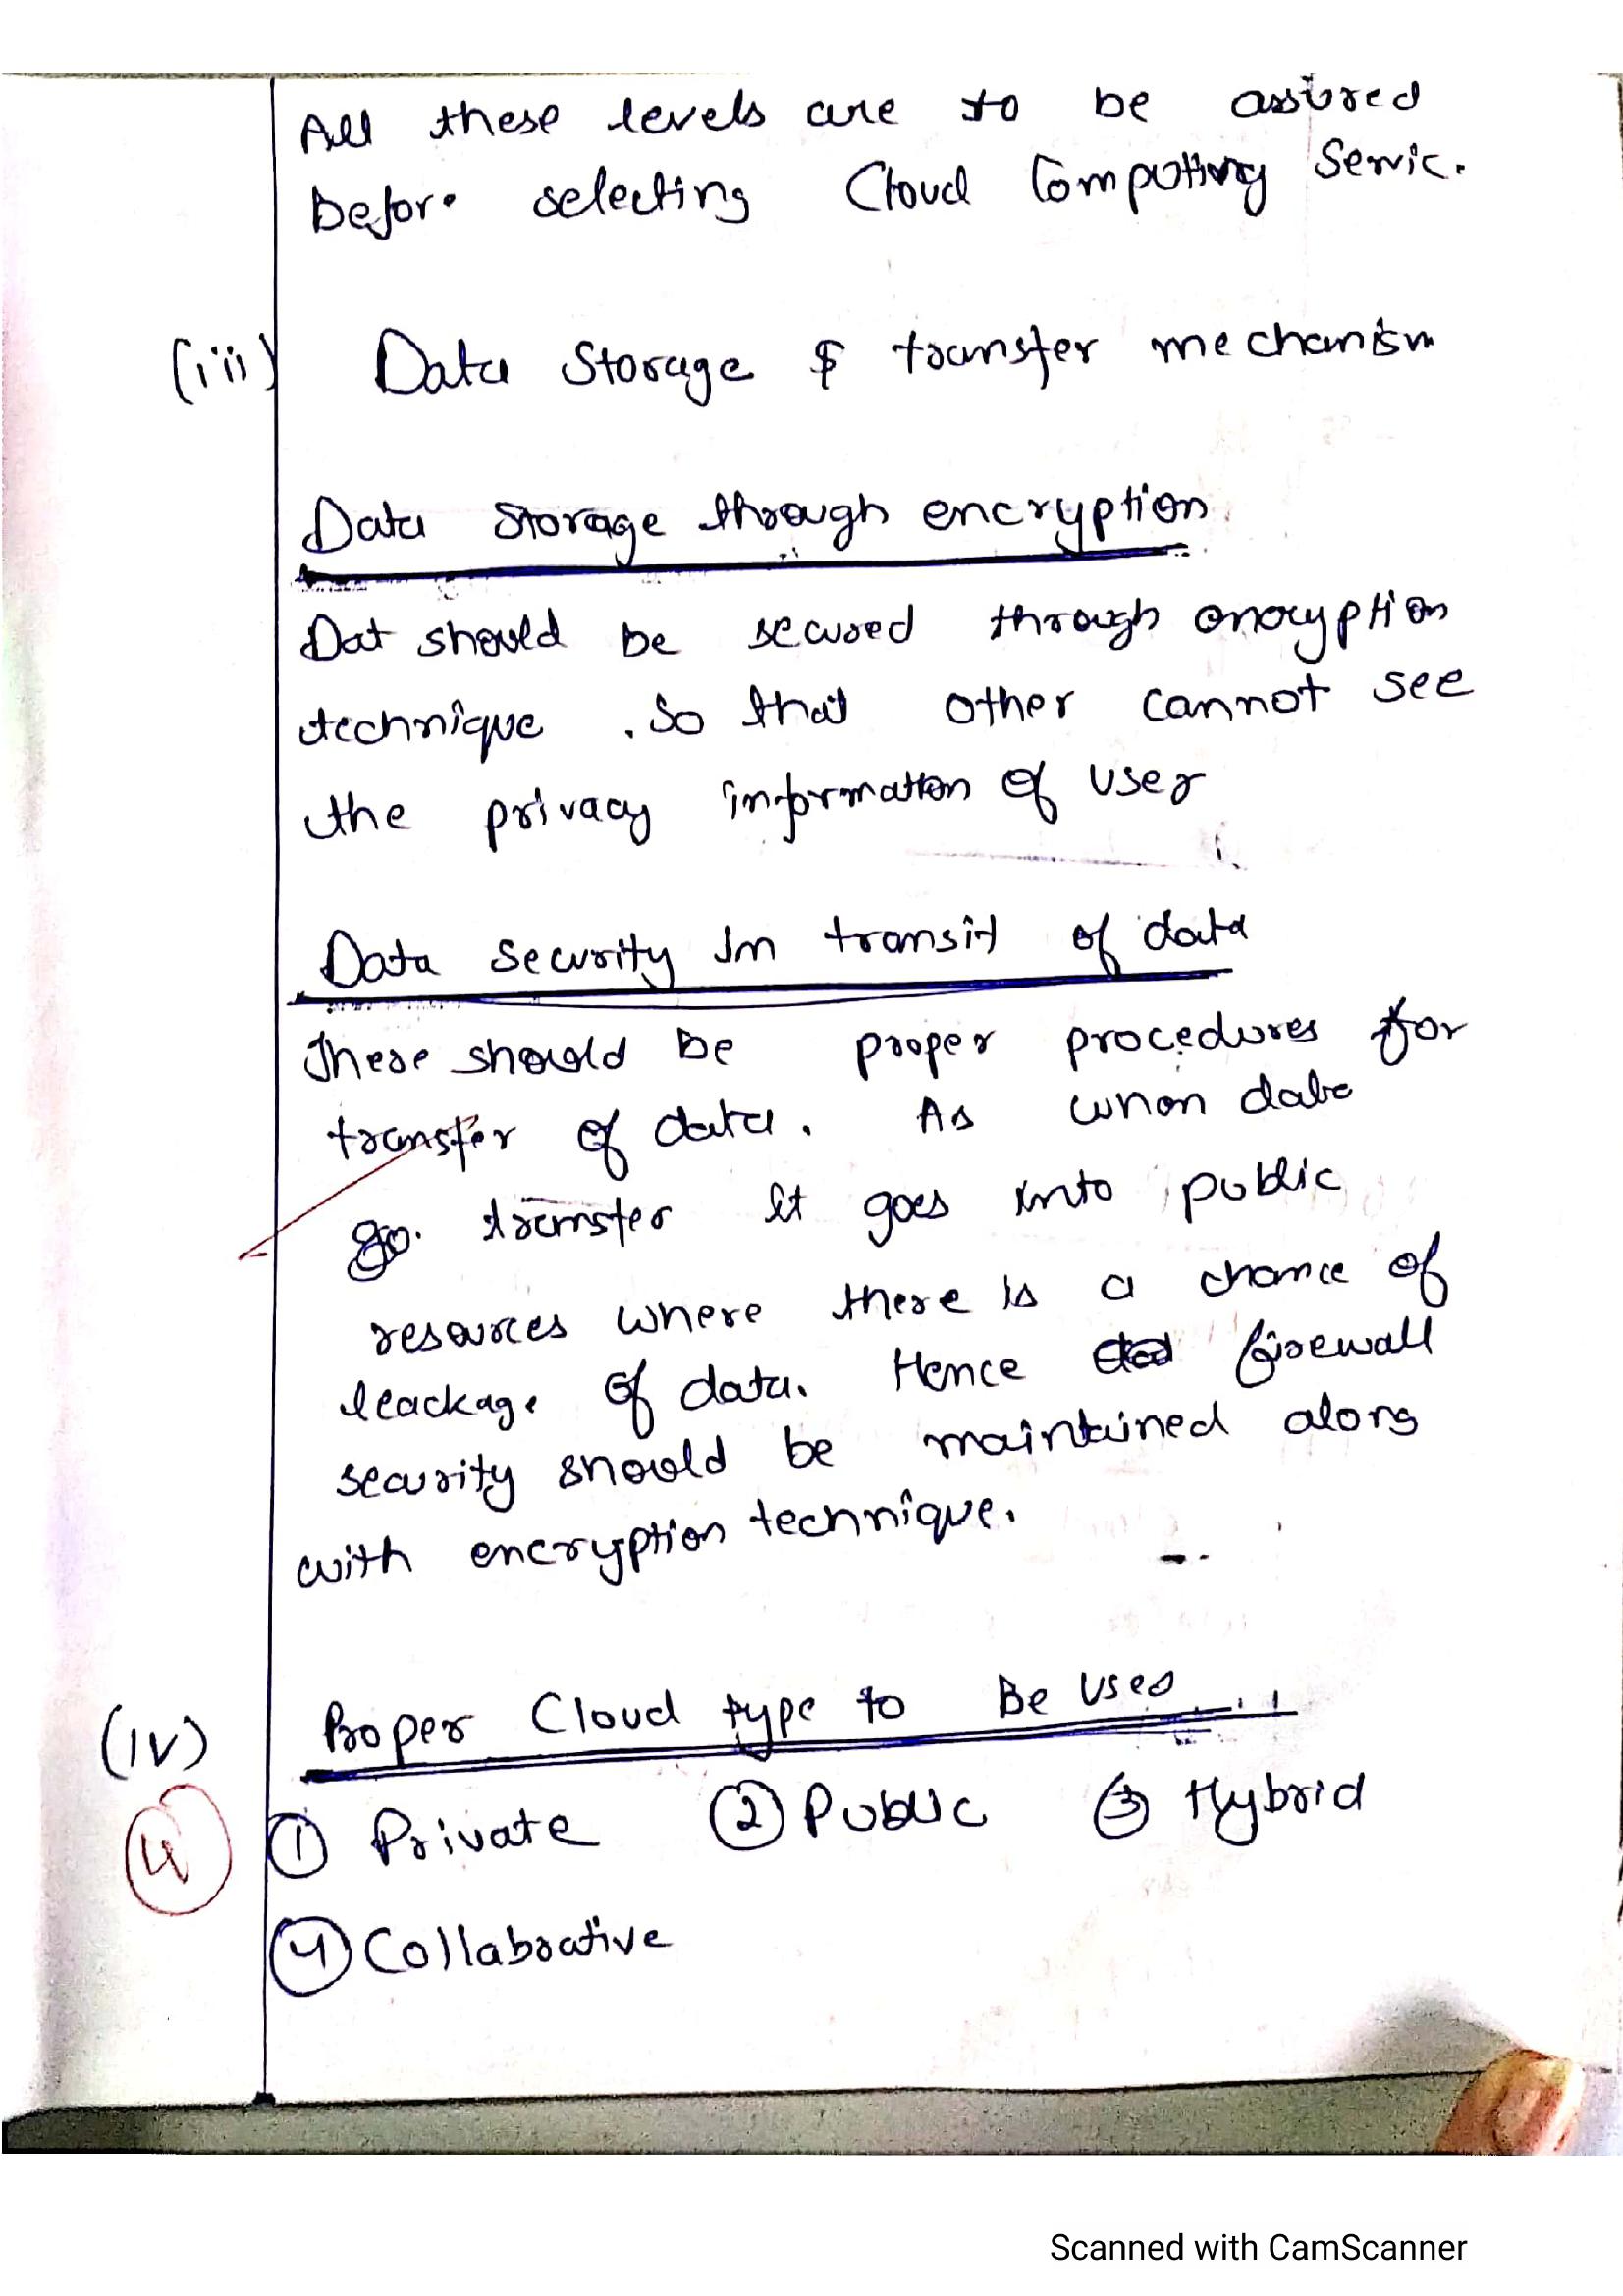 All these levels are to be assured
before selecting Cloud Computing Servic.
(iii) Data Storage & transfer mechanism
Data storage through encryption
Dat should be secured through encryption
technique . So that other cannot see
the privacy information of user
Data Security In transit of data
These should be proper procedures for
transfer of data. As when data
go. transfer it goes into public
resources where there is a chance of
leackage of data. Hence firewall
security should be maintained along
with encryption technique.
(iv) Proper Cloud type to Be Used
① Private ② Public ③ Hybrid
4
④ Collaborative
Scanned with CamScanner